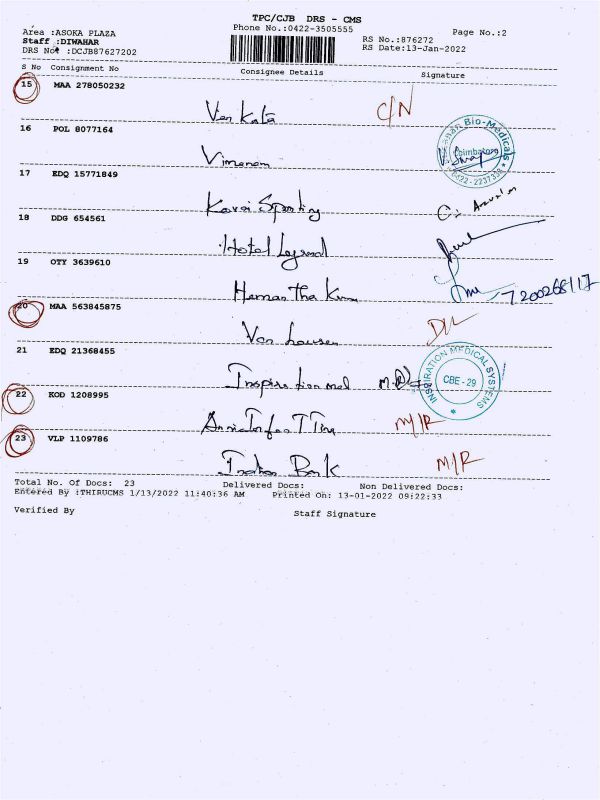 TPC/CJB DRS - CMS
Phone No.:0422-3505555
Page No.:2
Area :ASOKA PLAZA
Staff :DIWAHAR
DRS No# :DCJB87627202
RS No.:876272
RS Date:13-Jan-2022
S No Consignment No Consignee Details Signature
15 MAA 278050232
Ven Kata C/N
16 POL 8077164
Vimanam
Bio-Medicals
Coimbatore
0422-2237338
17 EDQ 15771849
Kovai Sporting
18 DDG 654561
Hotel Legend
19 OTY 3639610
Heman Tha Kum
20 MAA 563845875
Van hausen DL
21 EDQ 21368455
INSPIRATION MEDICAL SYSTEMS
CBE - 29
22 KOD 1208995
M/R
23 VLP 1109786
Indian Bank M/R
Total No. Of Docs: 23 Delivered Docs: Non Delivered Docs:
Entered By :THIRUCMS 1/13/2022 11:40:36 AM Printed On: 13-01-2022 09:22:33
Verified By Staff Signature